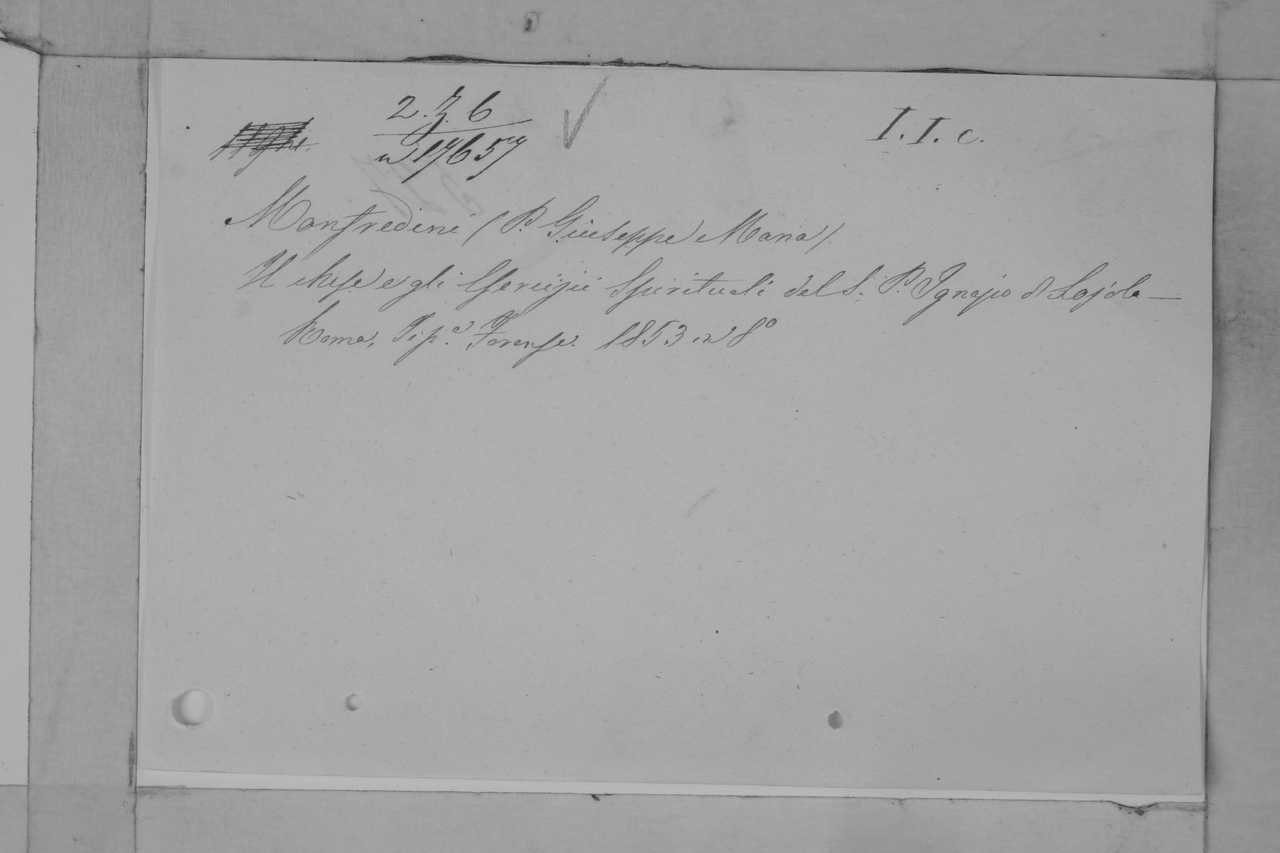 2. Z. 6
I. I. c.
n 17657
Manfredini (P. Giuseppe Maria)
Il Mese e gli Esercizii Spirituali del S. P. Ignazio di Lojola —
Roma, Tip.a Forense. 1853 in 8º